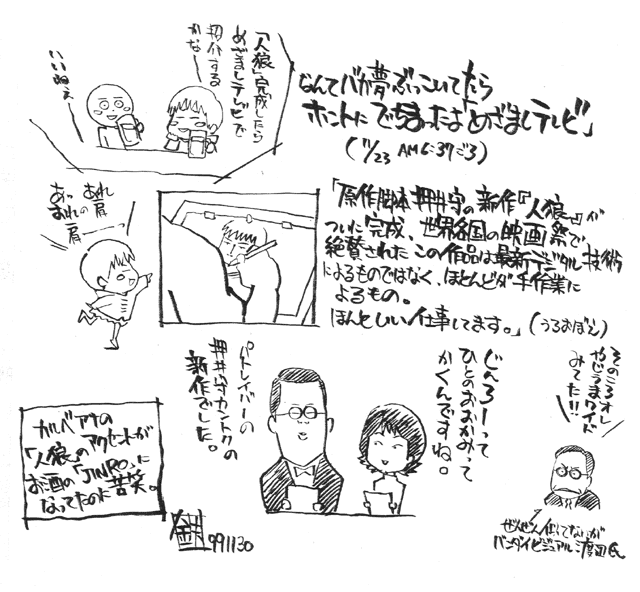 「人狼」完成したら
めざましテレビで
紹介する
かな〜
いいねぇ
なんてバカ夢ぶっこいてたら
ホントにでちまったよ「めざましテレビ」
(11/23 AM6:37ごろ)
「原作脚本押井守の新作『人狼』が
ついに完成、世界各国の映画祭で
絶賛されたこの作品は最新デジタル技術
によるものではなく、ほとんどが手作業に
よるもの。
ほんといい仕事してます。」(うろおぼえ)
あれ あれ
おれの肩
肩――
そのころオレ
やじうまワイド
みてた!!
じんろーって
ひとのおおかみって
かくんですね。
パトレイバーの
押井守カントクの
新作でした。
ガルベアナの
「人狼」のアクセントが
お酒の「JINRO」に
なってたのに苦笑。
991130
ぜんぜん似てないが
バンダイビジュアル渡辺氏